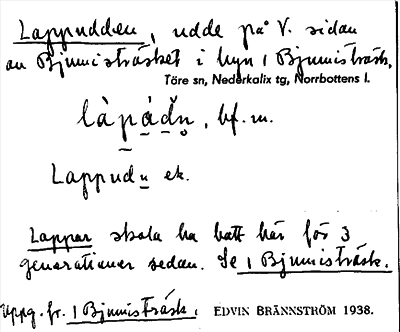 Lappudden, udde på V. sidan
av Bjumisträsket i byn 1 Bjumisträsk,
Töre sn, Nederkalix tg, Norrbottens l.
làpá̠dn̥, bf. m.
Lappudn ek.
Lappar skola ha haft här för 3
generationer sedan. Se 1 Bjumisträsk.
Uppg. fr. 1 Bjumisträsk. EDVIN BRÄNNSTRÖM 1938.